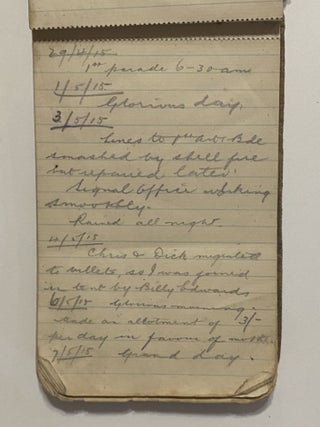 29/4/15.
1st parade 6-30 am
1/5/15.
Glorious day.
3/5/15
Lines to 1st Art. Bde
smashed by shell fire
but repaired later.
Signal office working
smoothly.
Rained all night.
4/5/15
Chris & Dick migrated
to billets, so I was joined
in tent by Billy Edwards
6/5/15 Glorious morning.
made an allotment of 3/-
per day in favour of mother.
7/5/15 Grand day.